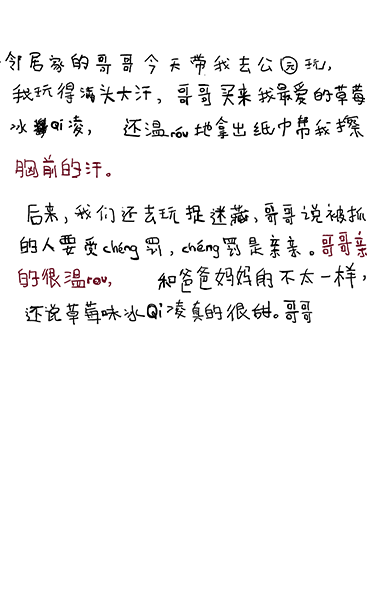 邻居家的哥哥今天带我去公园玩，
我玩得满头大汗，哥哥买来我最爱的草莓
冰Qi凌，还温róu地拿出纸巾帮我擦
胸前的汗。
后来，我们还去玩捉迷藏，哥哥说被抓
的人要受chéng罚，chéng罚是亲亲。哥哥亲
的很温rou，和爸爸妈妈的不太一样，
还说草莓味冰Qi凌真的很甜。哥哥